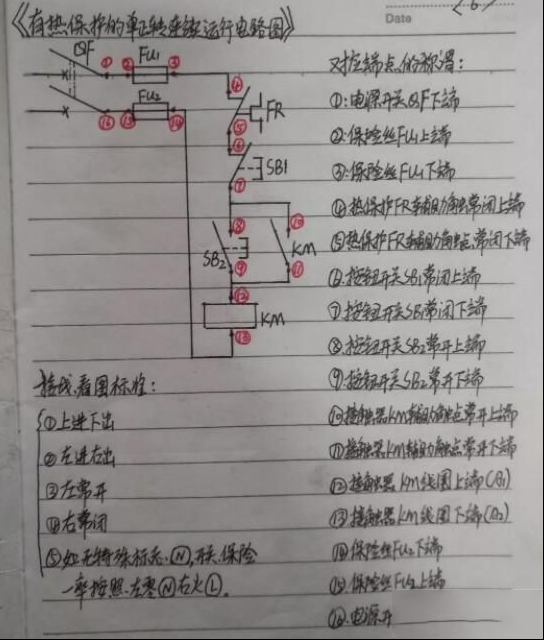 《有热保护的单正转连续运行电路图》
Date
QF
①
②
FU₁
③
⑯
⑮
FU₂
⑭
④
FR
⑤
⑥
SB1
⑦
⑧
SB₂
⑨
⑩
KM
⑪
⑫
KM
⑬
对应端点的称谓：
①：电源开关QF下端
②：保险丝FU₁上端
③：保险丝FU₁下端
④热保护FR辅助触点常闭上端
⑤热保护FR辅助触点常闭下端
⑥按钮开关SB1常闭上端
⑦按钮开关SB1常闭下端
⑧按钮开关SB₂常开上端
⑨按钮开关SB₂常开下端
⑩接触器KM辅助触点常开上端
⑪接触器KM辅助触点常开下端
⑫接触器KM线圈上端(A1)
⑬接触器KM线圈下端(A₂)
⑭保险丝FU₂下端
⑮保险丝FU₂上端
⑯电源开
接线看图标准：
①上进下出
②左进右出
③左常开
④右常闭
⑤如无特殊标志Ⓝ，开关、保险
一率按照左零Ⓝ右火Ⓛ。